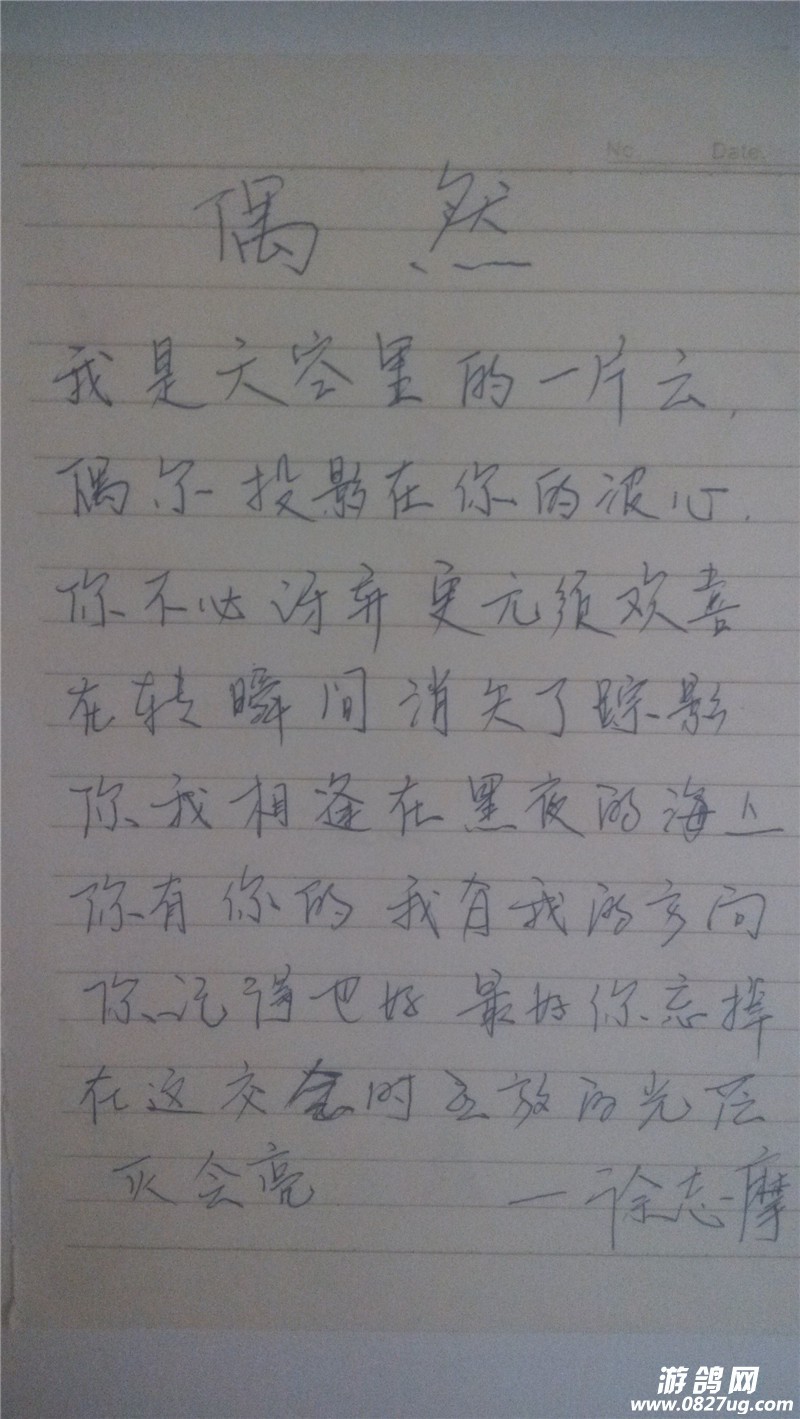 No. Date.
偶然
我是天空里的一片云,
偶尔投影在你的波心.
你不必讶异 更无须欢喜
在转瞬间消失了踪影
你我相逢在黑夜的海上
你有你的 我有我的方向
你记得也好 最好你忘掉
在这交会时互放的光
会亮 —徐志摩
游鸽网
www.0827ug.com